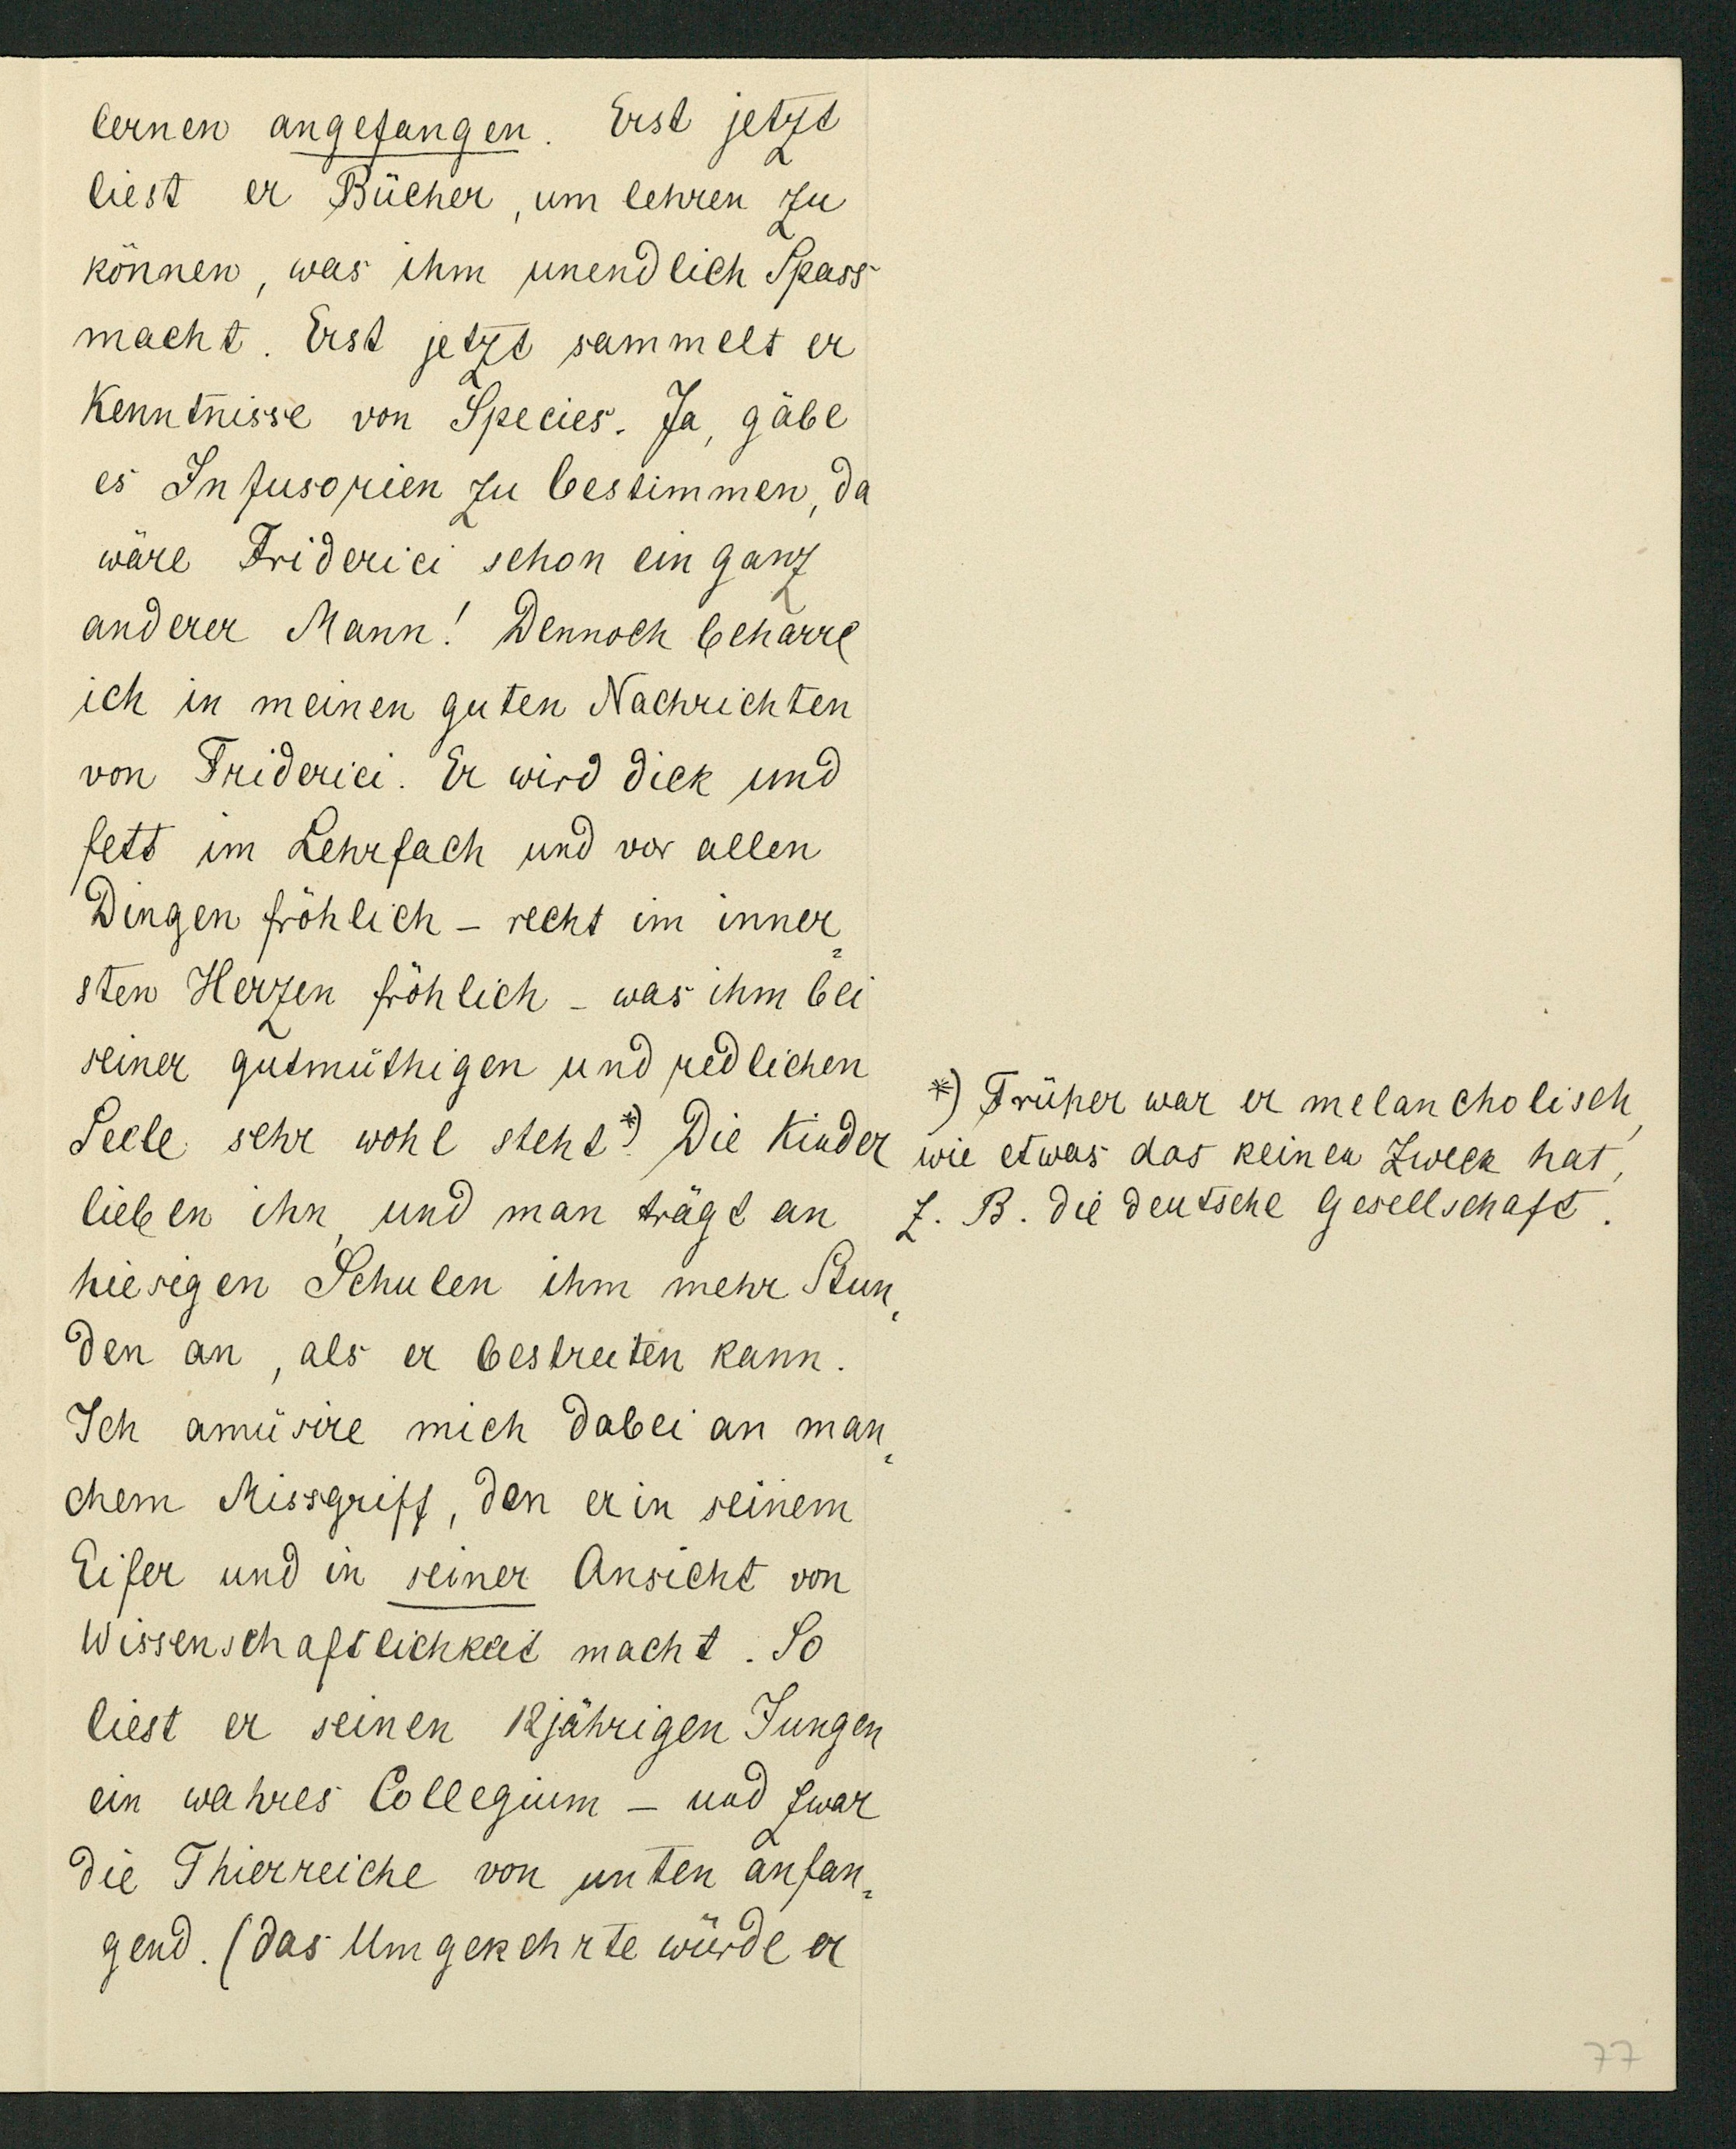 lernen angefangen. Erst jetzt
liest er Bücher, um lehren zu
können, was ihm unendlich Spass
macht. Erst jetzt sammelt er
Kenntnisse von Species. Ja, gäbe
es Infusorien zu bestimmen, da
wäre Friderici schon ein ganz
anderer Mann! Dennoch beharre
ich in meinen guten Nachrichten
von Friderici. Er wird dick und
fett im Lehrfach und vor allen
Dingen fröhlich – recht im inner=
sten Herzen fröhlich – was ihm bei
seiner gutmüthigen und redlichen
Seele sehr wohl steht*). Die Kinder
lieben ihn, und man trägt an
hiesigen Schulen ihm mehr Stun=
den an, als er bestreiten kann.
Ich amüsire mich dabei an man=
chem Missgriff, den er in seinem
Eifer und in seiner Ansicht von
Wissenschaftlichkeit macht. So
liest er seinen 12jährigen Jungen
ein wahres Collegium – und zwar
die Thierreiche von unten anfan=
gend. (das Umgekehrte würde er
*) Früher war er melancholisch,
wie etwas das keinen Zweck hat,
z. B. die deutsche Gesellschaft.
77